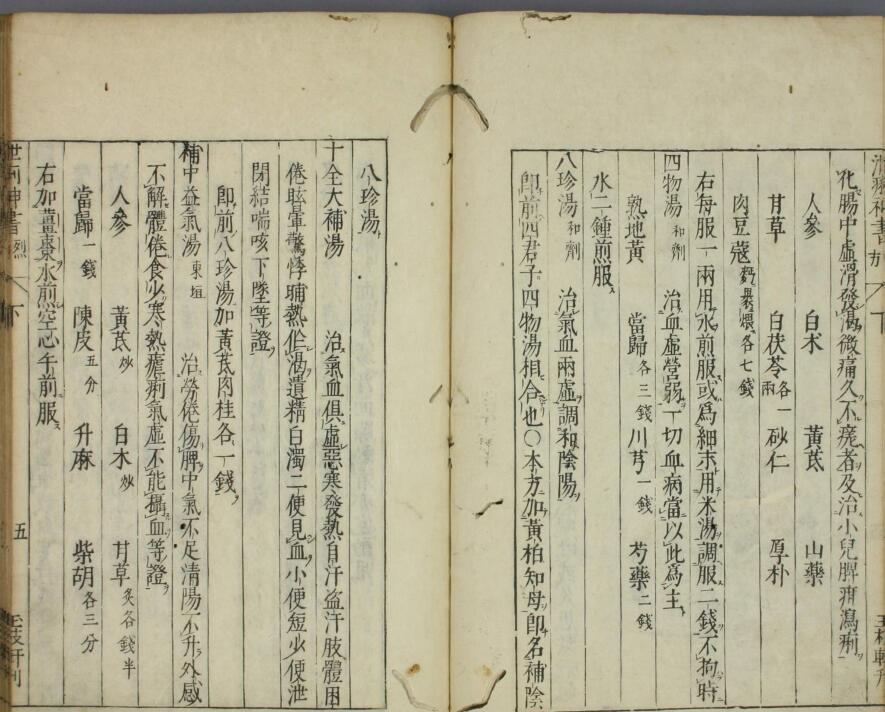 化腸中虛滑發渴微痛久不痊者及治小兒脾疳瀉痢
人參 白朮 黃芪 山藥
甘草 白茯苓各一兩 砂仁 厚朴
肉豆蔻麪裹煨各七錢
右每服一兩用水煎服或爲細末用米湯調服二錢不拘時
四物湯和劑 治血虛營弱一切血病當以此爲主
熟地黃 當歸各三錢 川芎一錢 芍藥二錢
水二鍾煎服
八珍湯和劑 治氣血兩虛調和陰陽
即前四君子四物湯相合也〇本方加黃柏知母即名補陰
八珍湯
十全大補湯 治氣血俱虛惡寒發熱自汗盜汗肢體困
倦眩暈驚悸晡熱作渴遺精白濁二便見血小便短少便泄
閉結喘咳下墜等證
即前八珍湯加黃芪肉桂各一錢
補中益氣湯東垣 治勞倦傷脾中氣不足清陽不升外感
不解體倦食少寒熱瘧痢氣虛不能攝血等證
人參 黃芪炒 白朮炒 甘草炙各錢半
當歸一錢 陳皮五分 升麻 柴胡各三分
右加薑棗水煎空心午前服
下 五